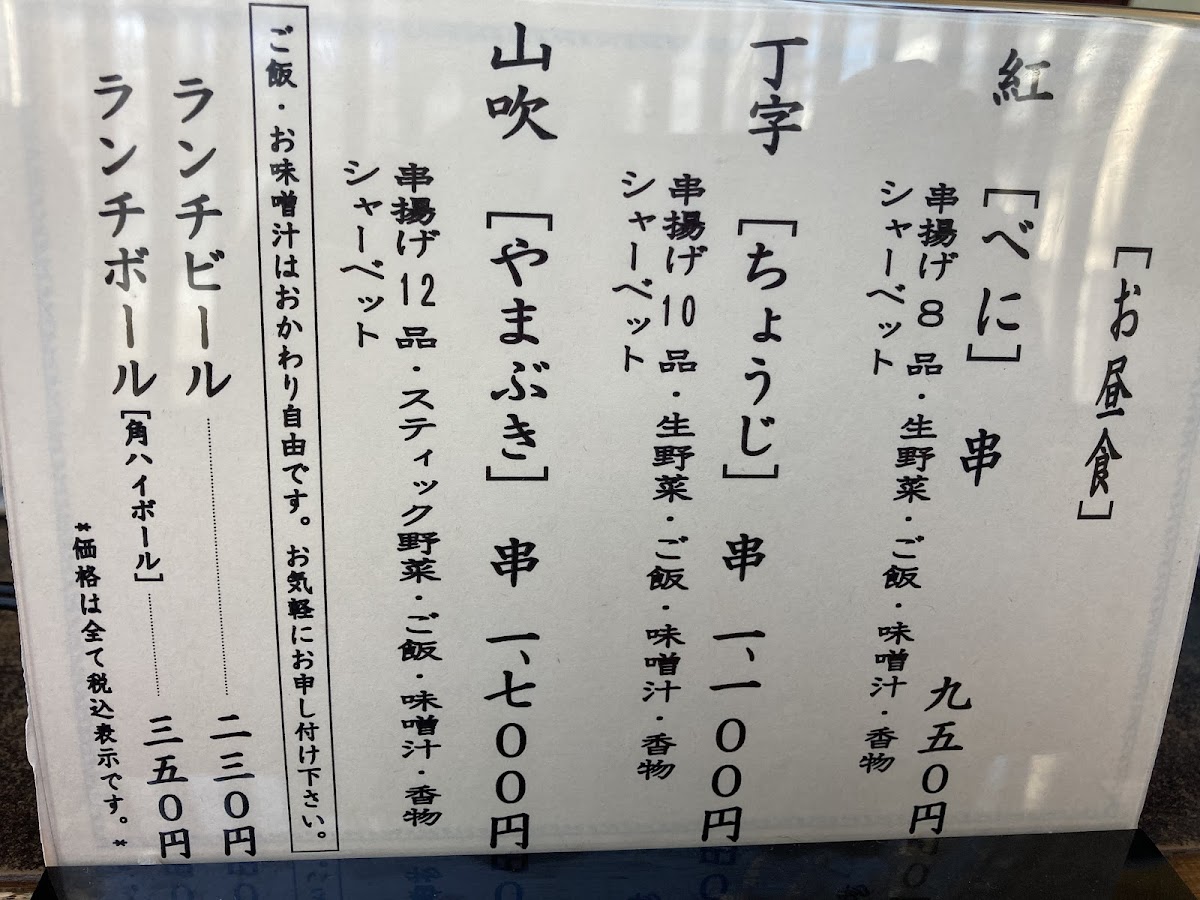 [お昼食]
紅 [べに] 串 九五０円
串揚げ８品・生野菜・ご飯・味噌汁・香物
シャーベット
丁字 [ちょうじ] 串 一、一００円
串揚げ10品・生野菜・ご飯・味噌汁・香物
シャーベット
山吹 [やまぶき] 串 一、七００円
串揚げ12品・スティック野菜・ご飯・味噌汁・香物
シャーベット
ご飯・お味噌汁はおかわり自由です。お気軽にお申し付け下さい。
ランチビール 二三０円
ランチボール[角ハイボール] 三五０円
*価格は全て税込表示です。*